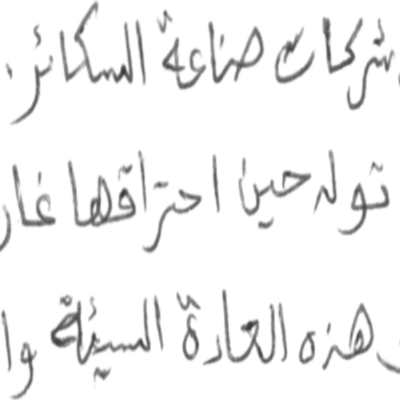 شركات صناعة السكائر.
تولد حين احتراقها غاز
هذه العادة السيئة وا